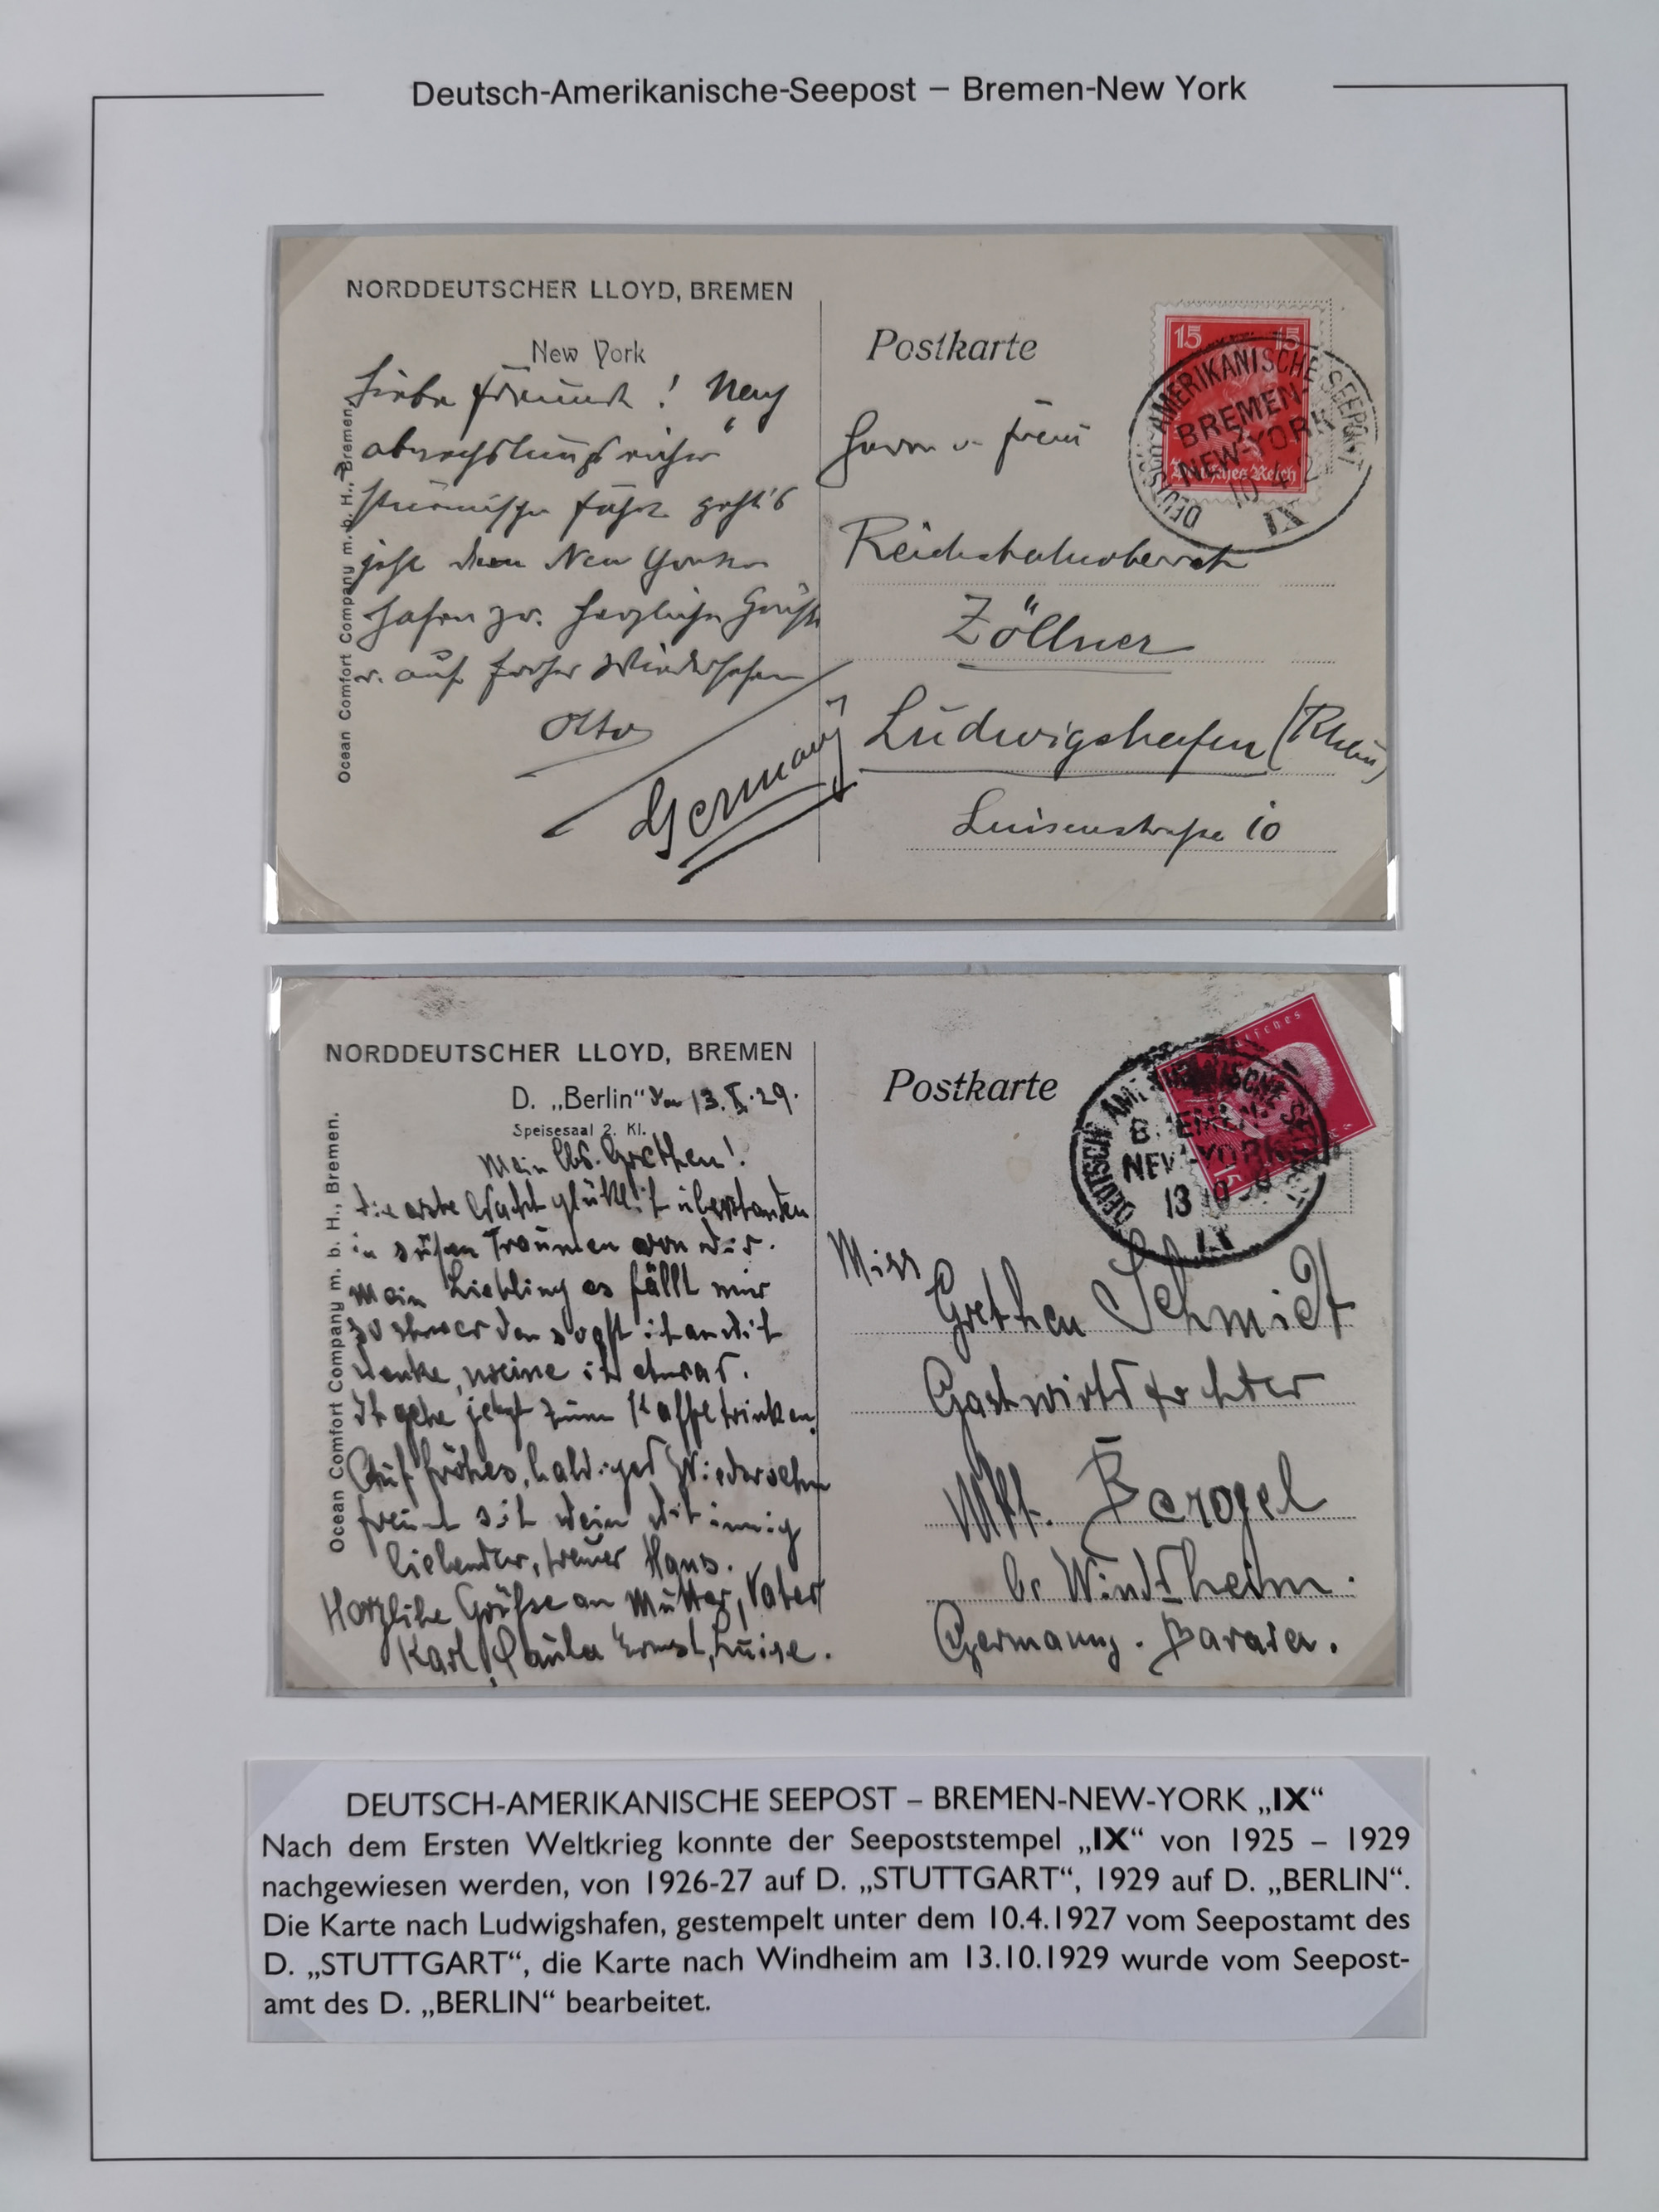 Deutsch-Amerikanische-Seepost – Bremen-New York
NORDDEUTSCHER LLOYD, BREMEN
New York
Postkarte
Ocean Comfort Company m. b. H., Bremen.
Liebe Freunde! Nach
abwechslungsreicher
stürmischer Fahrt geht's
jetzt dem New Yorker
Hafen zu. Herzliche Grüße
u. auf frohes Wiedersehen
Otto
Germany
15 15
Deutsches Reich
DEUTSCH-AMERIKANISCHE SEEPOST
BREMEN-
NEW-YORK
10 4 2
IX
Herrn u. Frau
Reichsbahnoberrat
Zöllner
Ludwigshafen (Rhein)
Luisenstraße 10
NORDDEUTSCHER LLOYD, BREMEN
D. „Berlin“ 13.X.29.
Speisesaal 2. Kl.
Postkarte
Ocean Comfort Company m. b. H., Bremen.
Mein lbs. Grethen!
die erste Nacht glüklich überstanden
in süßen Träumen von dir.
Mein Liebling es fällt mir
zu schwer den so oft ich an dich
denke, weine ich etwas.
Ich gehe jetzt zum Kaffetrinken.
Auf frohes, baldiges Wiedersehn
freut sich dein dich innig
liebender, treuer Hans.
Herzliche Grüße an Mutter, Vater
Karl, Paula Ernst, Luise.
15
DEUTSCH AMERIKANISCHE SEEPOST
BREMEN-
NEW-YORK
13 10 29
IX
Miss
Grethen Schmidt
Gastwirtstochter
Mkt. Bergel
b. Windsheim.
Germany. Bavaria.
DEUTSCH-AMERIKANISCHE SEEPOST – BREMEN-NEW-YORK „IX“
Nach dem Ersten Weltkrieg konnte der Seepoststempel „IX“ von 1925 – 1929
nachgewiesen werden, von 1926-27 auf D. „STUTTGART“, 1929 auf D. „BERLIN“.
Die Karte nach Ludwigshafen, gestempelt unter dem 10.4.1927 vom Seepostamt des
D. „STUTTGART“, die Karte nach Windheim am 13.10.1929 wurde vom Seepost-
amt des D. „BERLIN“ bearbeitet.